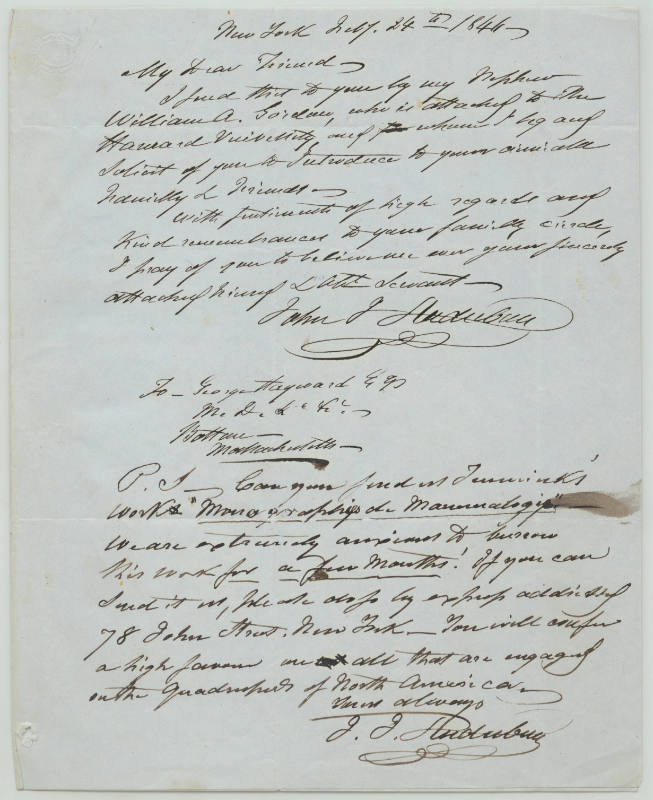 New York Feby. 24th 1846
My Dear Friend
I send this to you by my Nephew
William A. Gordon, who is attached to the
Harvard University, and whom I beg and
Solicit of you to Introduce to your amiable
Familly & Friends
With sentiments of high regards and
Kind remembrances to your familly circle,
I pray of you to believe me ever your sincerely
attached friend & Obt. Servant
John J Audubon
To George Hayward Esqr
M. D. &c &c.
Boston
Massachusetts
P. S. Can you send us Temminck's
work "Monographies de Mammalogie"
We are extremely anxious to borrow
this work for a few Months! If you can
Send it us, please do so by express addressed
78 John Street. New York — You will confer
a high favour on all that are engaged
on the Quadrupeds of North America
Yours always
J. J. Audubon